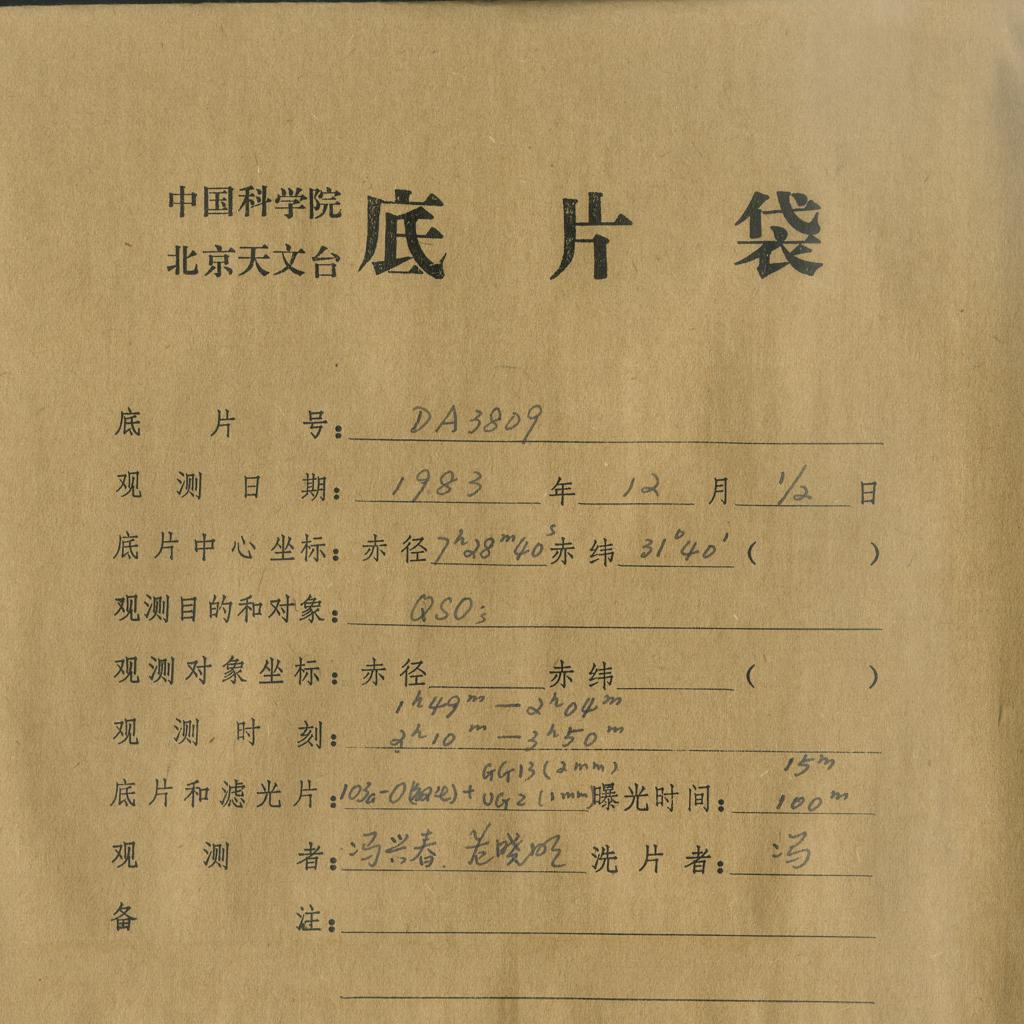 中国科学院
北京天文台
底片袋
底片号： DA3809
观测日期： 1983 年 12 月 1/2 日
底片中心坐标：赤径 7h28m40s 赤纬 31°40′ （ ）
观测目的和对象： QSOs
观测对象坐标：赤径 赤纬 （ ）
1h49m—2h04m
观测时刻： 2h10m—3h50m
GG13(2mm) 15m
底片和滤光片： 103a-O + UG2(1mm) 曝光时间： 100m
观测者： 冯兴春. 晓 洗片者： 冯
备注：